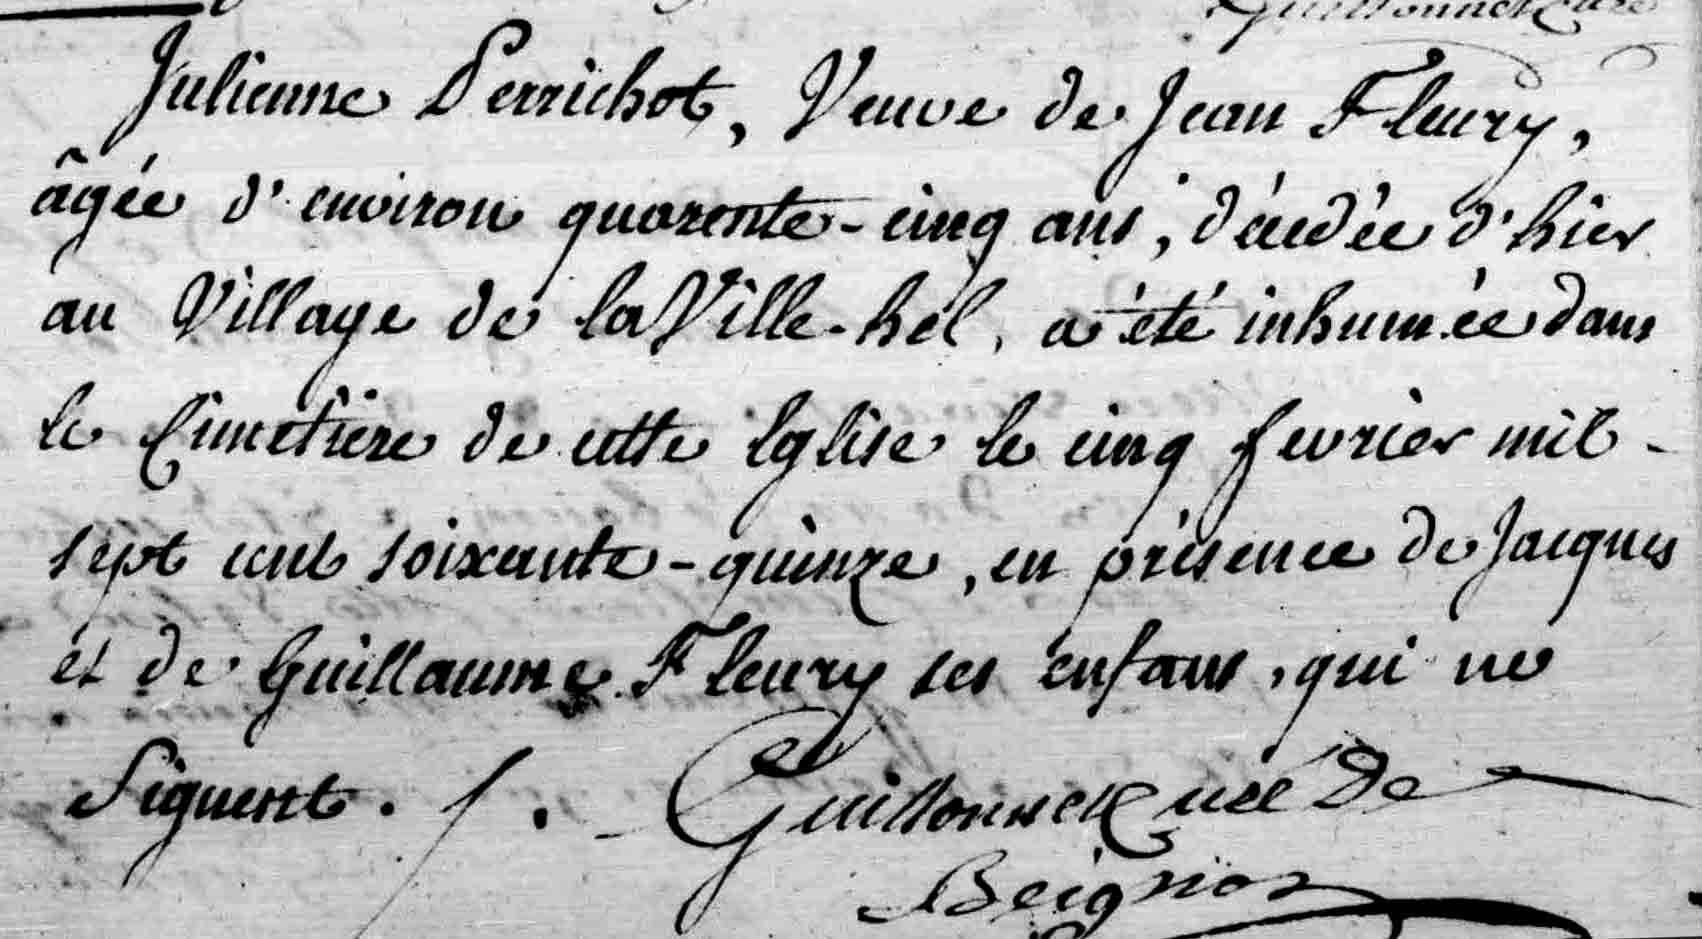 Julienne Perrichot, Veuve de Jean Fleury,
âgée d'environ quarente-cinq ans, décédée d'hier
au Village de la Ville-hel, a été inhumée dans
le Cimetière de cette Eglise le cinq fevrier mil-
sept cent soixante-quinze, en présence de Jacques
et de Guillaume Fleury ses enfans, qui ne
Signent. /.
curé de
Beignon